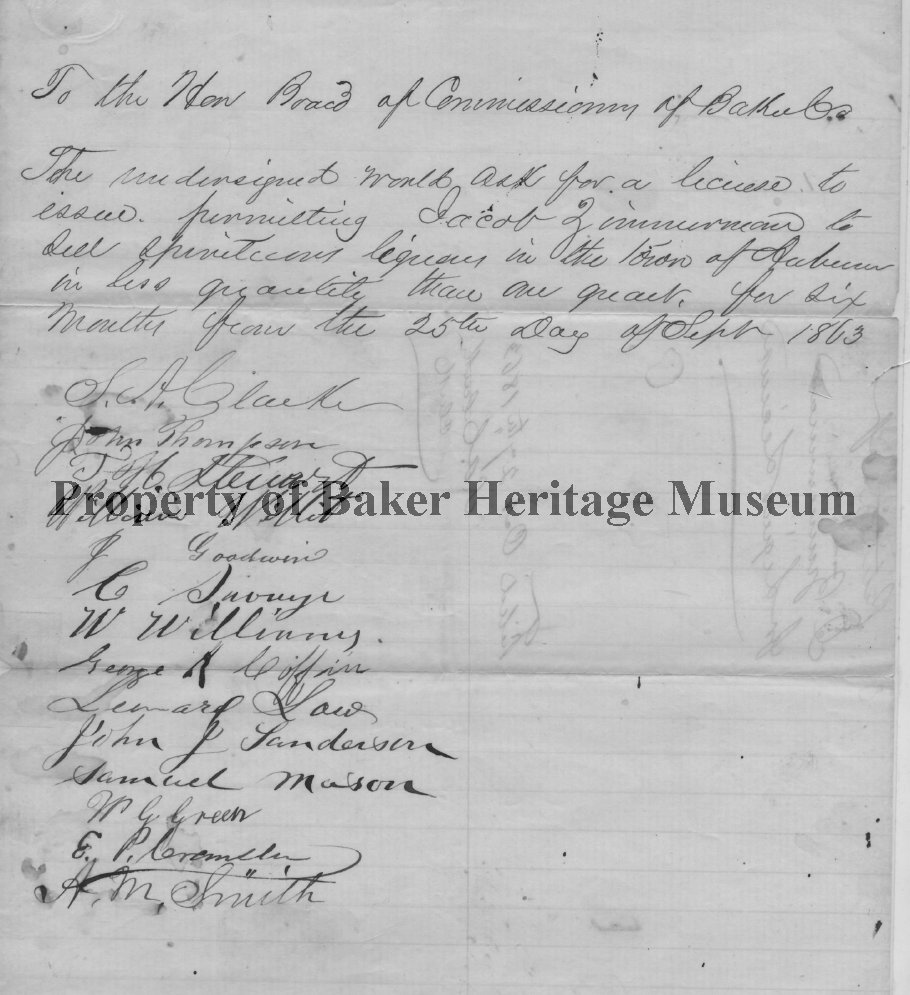 To the Hon Board of Commissioners of Baker Co.
The undersigned would ask for a license to
issue. permitting Jacob Zimmerman to
sell spirituous liquors in the Town of Auburn
in less quantity than one quart. for six
Months from the 25th Day of Sept 1863
S. A. Clarke
John Thompson
T. H. Stewart
Property of Baker Heritage Museum
William
J Goodwin
C
W Williams.
George R Coffin
Leonard Low
John J Sanderson
Samuel Mason
W G Green
E. P.
A. M. Smith